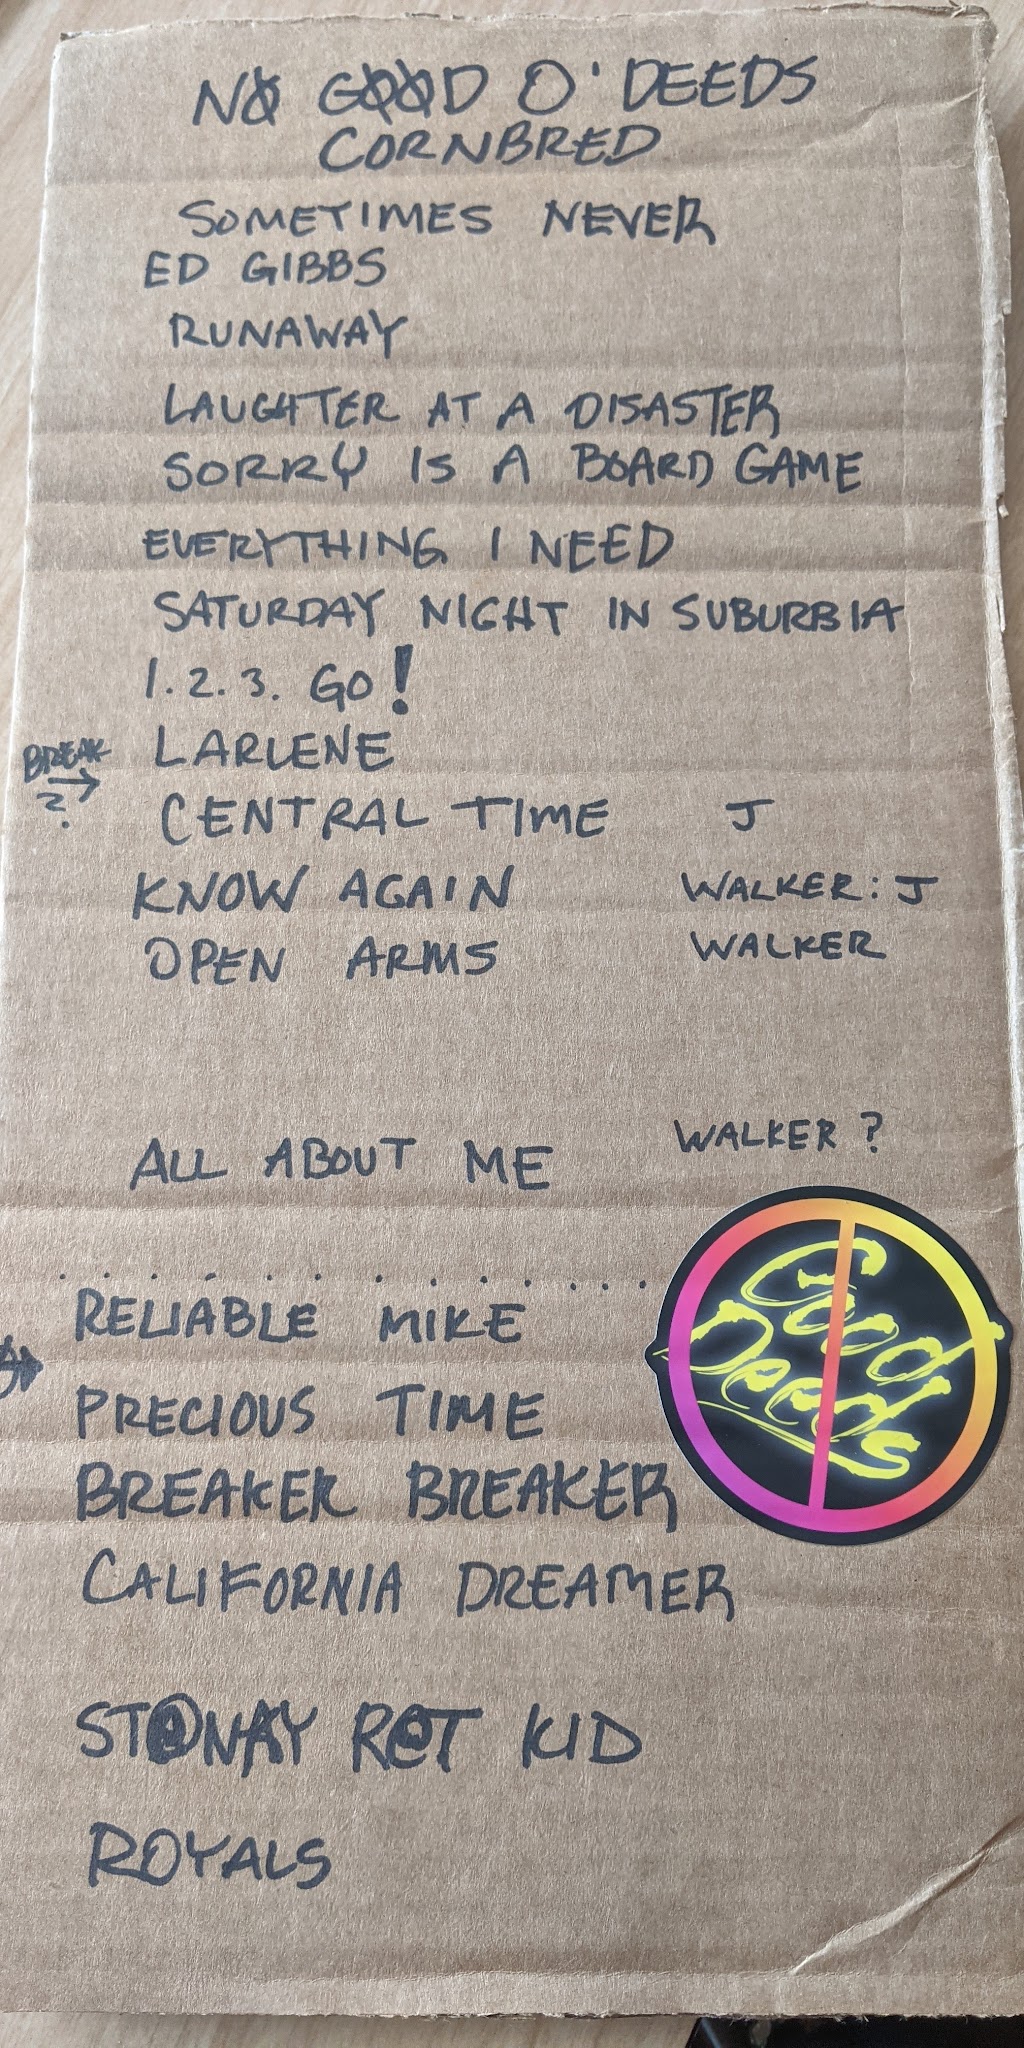 NO GOOD O'DEEDS
CORNBRED
SOMETIMES NEVER
ED GIBBS
RUNAWAY
LAUGHTER AT A DISASTER
SORRY IS A BOARD GAME
EVERYTHING I NEED
SATURDAY NIGHT IN SUBURBIA
1.2.3. GO!
LARLENE
BREAK
?
CENTRAL TIME J
KNOW AGAIN WALKER: J
OPEN ARMS WALKER
ALL ABOUT ME WALKER?
RELIABLE MIKE
PRECIOUS TIME
BREAKER BREAKER
CALIFORNIA DREAMER
R@T KID
ROYALS
Good
Deeds